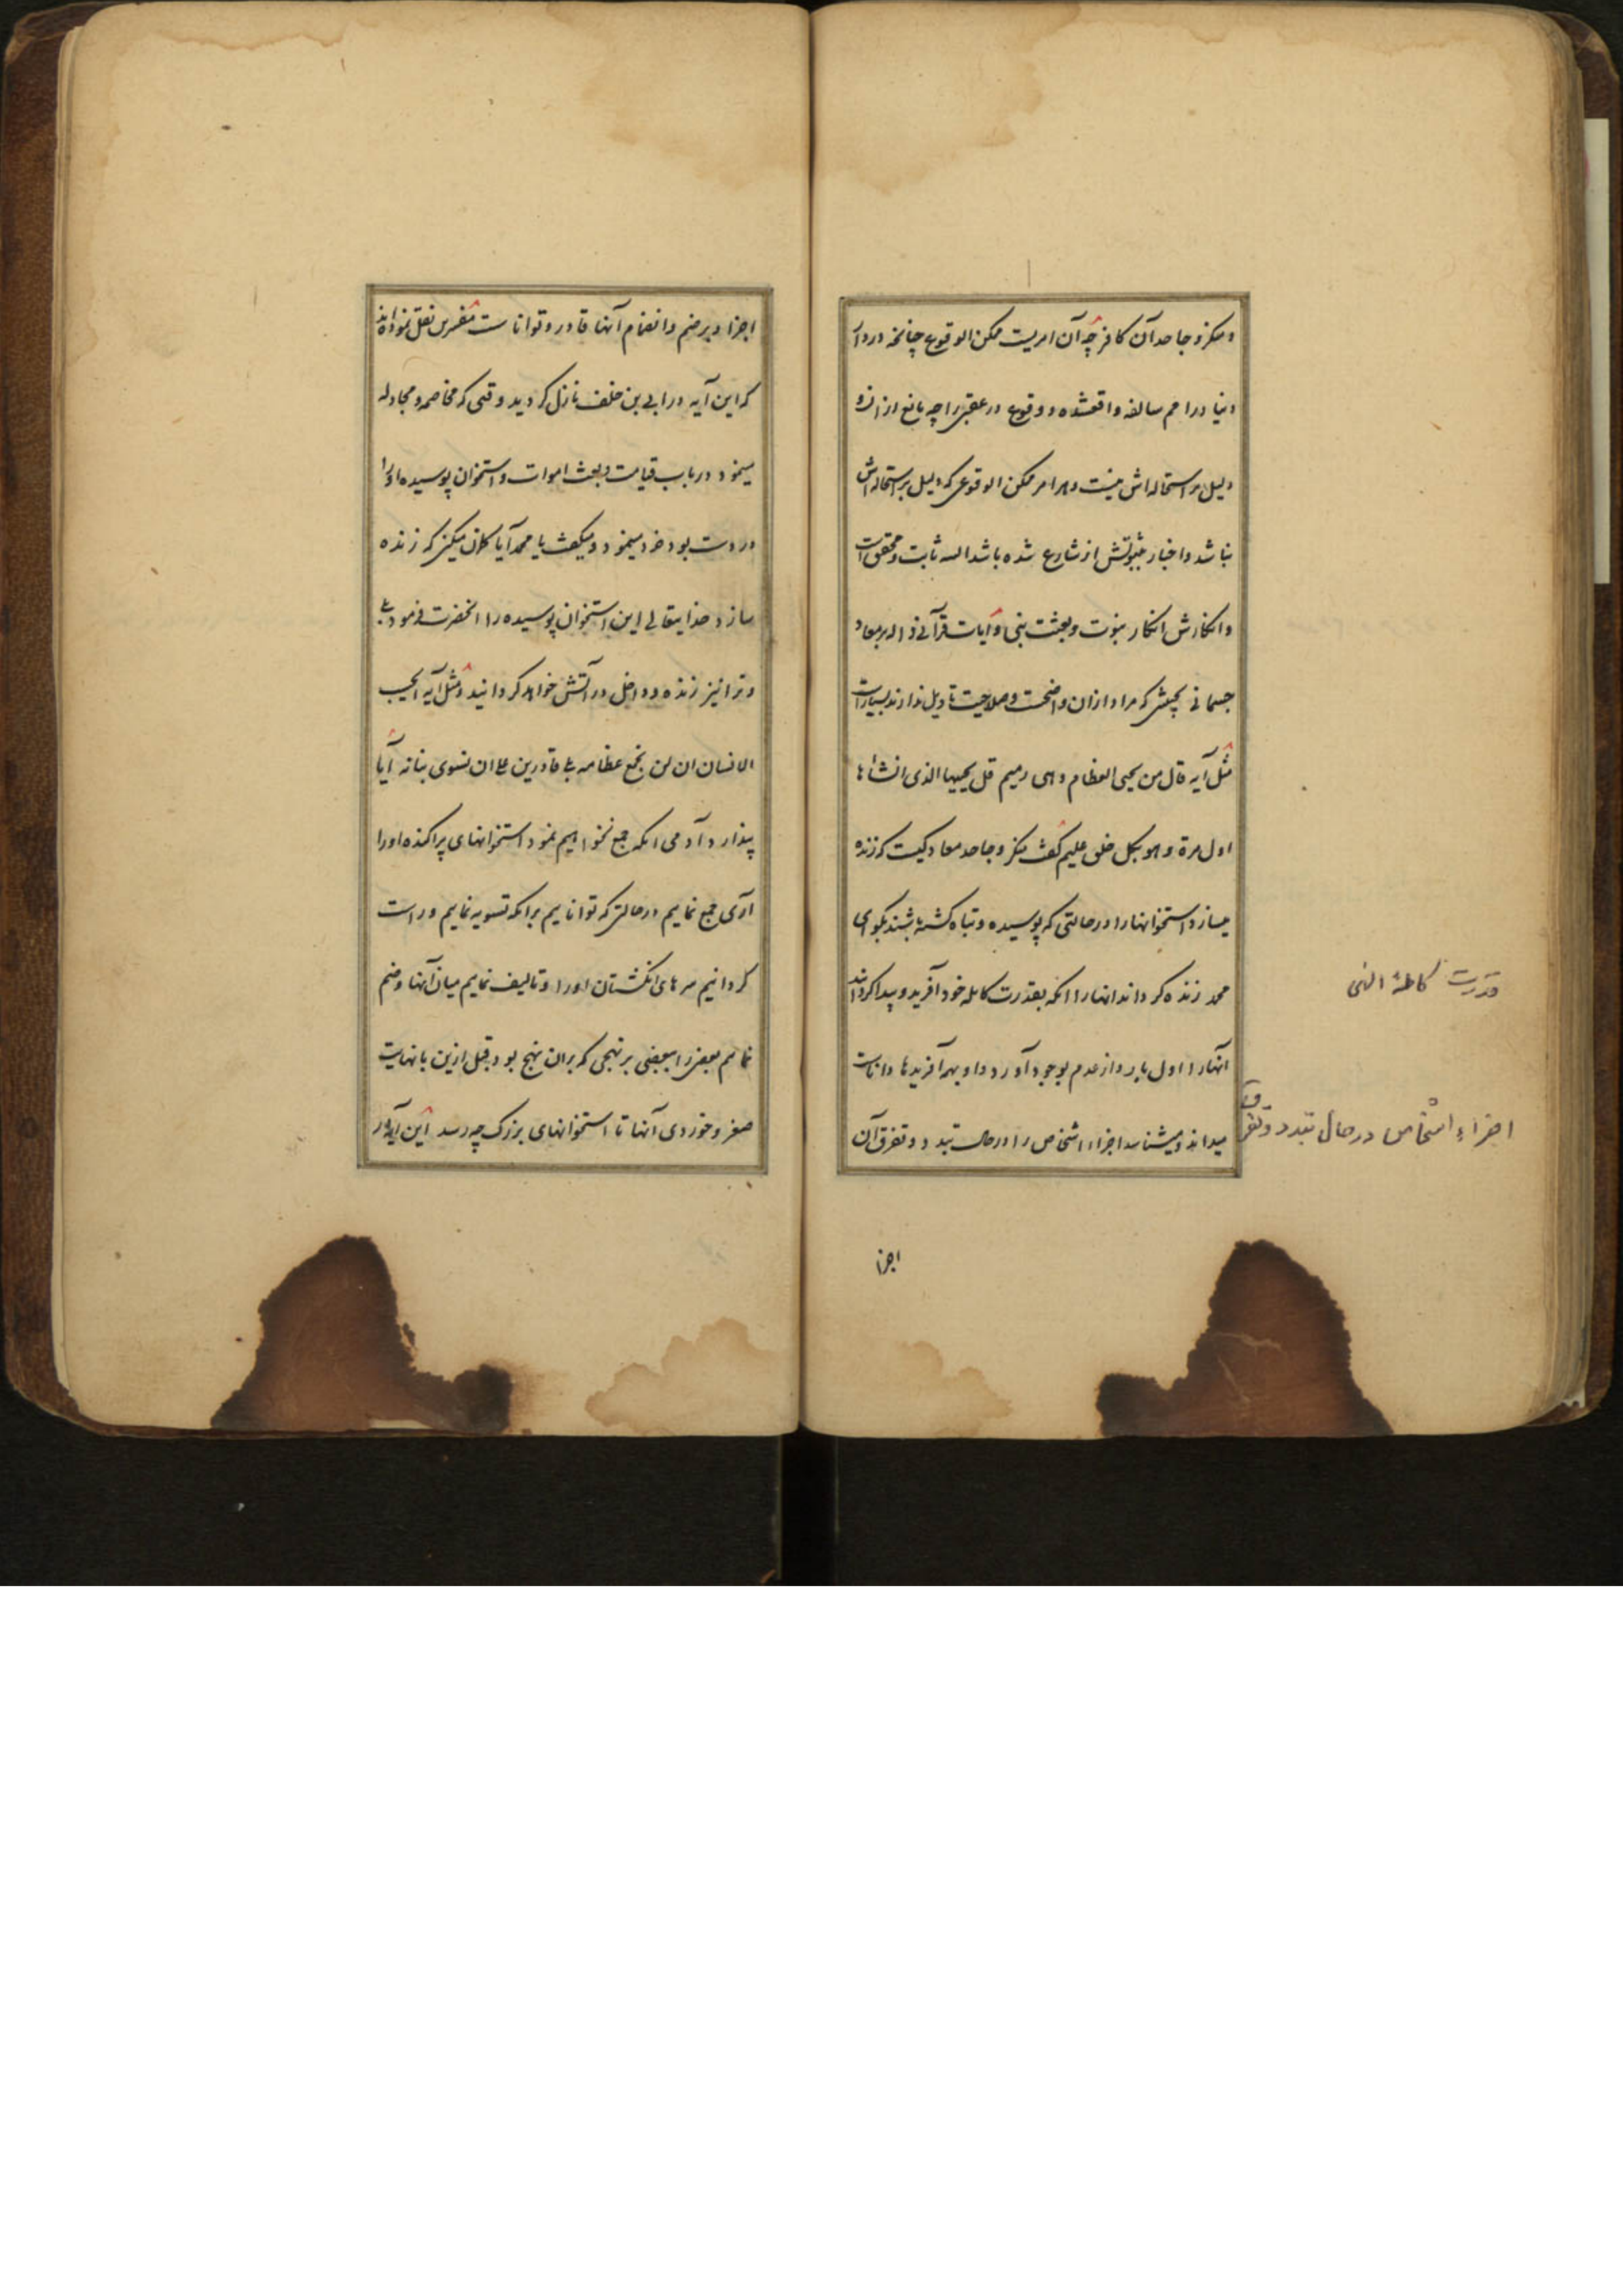 و منکر و جاحد آن کافر چه آن امریست ممکن الوقوع چنانچه در دار
دنیا در امم سالفه واقعشده و وقوع در عقبی را چه مانع از آن و
دلیل بر استحاله اش نیست و هر امر ممکن الوقوعی که دلیل بر استحاله اش
نباشد و اخبار بثبوتش از شارع شده باشد البته ثابت و محقق است
و انکارش انکار نبوت و بعثت نبی و آیات قرآنی داله بر معاد
جسمانی بحیثی که مراد از آن واضحست و صلاحیت تاویل ندارند بسیار است
مثل آیه قال من یحیی العظام وهی رمیم قل یحییها الذی انشأها
اول مرة وهو بکل خلق علیم گفت منکر و جاحد معاد کیست که زنده
میسازد استخوانها را در حالتی که پوسیده و تباه گشته باشند بگو ای
محمد زنده گرداند انها را انکه بقدرت کامله خود آفرید و پیدا گردانید
آنها را اول بار و از عدم بوجود آورد و او بهمه آفریدها داناست
میداند و میشناسد اجزاء اشخاص را در حالت تبدد و تفرق آن
قدرت کاملهٔ الهی
اجزاء اشخاص در حال تبدد و تفرق
اجزا
اجزا و بر ضم و انضمام آنها قادر و تواناست مفسرین نقل نموده اند
که این آیه در ابی بن خلف نازل گردید وقتی که مخاصمه و مجادله
مینمود در باب قیامت و بعث اموات و استخوان پوسیده او را
در دست بود خرد مینمود و میگفت یا محمد آیا گمان میکنی که زنده
سازد خدایتعالی این استخوان پوسیده را انحضرت فرمود بلی
و ترا نیز زنده و داخل در آتش خواهد گردانید و مثل آیه ایحسب
الانسان ان لن نجمع عظامه بلی قادرین علی ان نسوی بنانه آیا
پندارد آدمی انکه جمع نخواهیم نمود استخوانهای پراکنده او را
آری جمع نماییم در حالتی که تواناییم بر انکه تسویه نماییم و راست
گردانیم سرهای انگشتان او را و تالیف نماییم میان آنها و ضم
نماییم بعضی را ببعضی بر نهجی که بر ان نهج بود قبل ازین با نهایت
صغر و خوردی آنها تا استخوانهای بزرگ چه رسد این آیه در